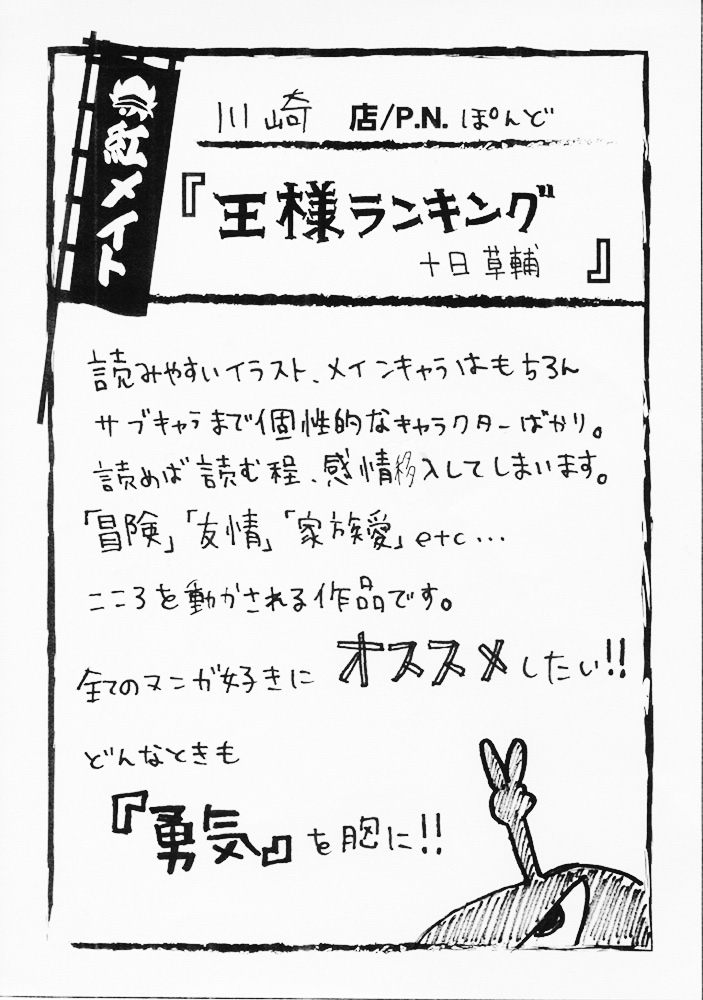 紅メイト
川崎 店/P.N. ぽんど
『王様ランキング
十日草輔 』
読みやすいイラスト、メインキャラはもちろん
サブキャラまで個性的なキャラクターばかり。
読めば読む程、感情移入してしまいます。
「冒険」「友情」「家族愛」etc...
こころを動かされる作品です。
全てのマンガ好きに オススメしたい!!
どんなときも
『勇気』を胸に!!